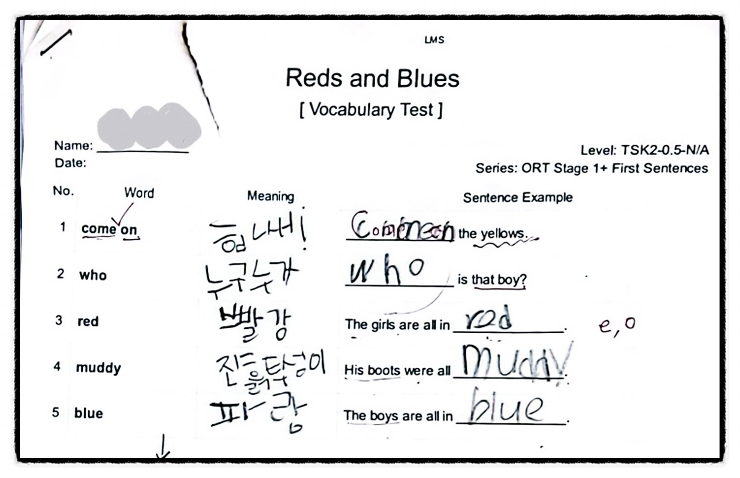 LMS
Reds and Blues
[ Vocabulary Test ]
Name:
Date:
Level: TSK2-0.5-N/A
Series: ORT Stage 1+ First Sentences
No. Word Meaning Sentence Example
1 come on 힘내! the yellows.
2 who 누구누가 who is that boy?
3 red 빨강 The girls are all in red. e, o
4 muddy 진흙투성이 His boots were all muddy.
5 blue 파랑 The boys are all in blue.